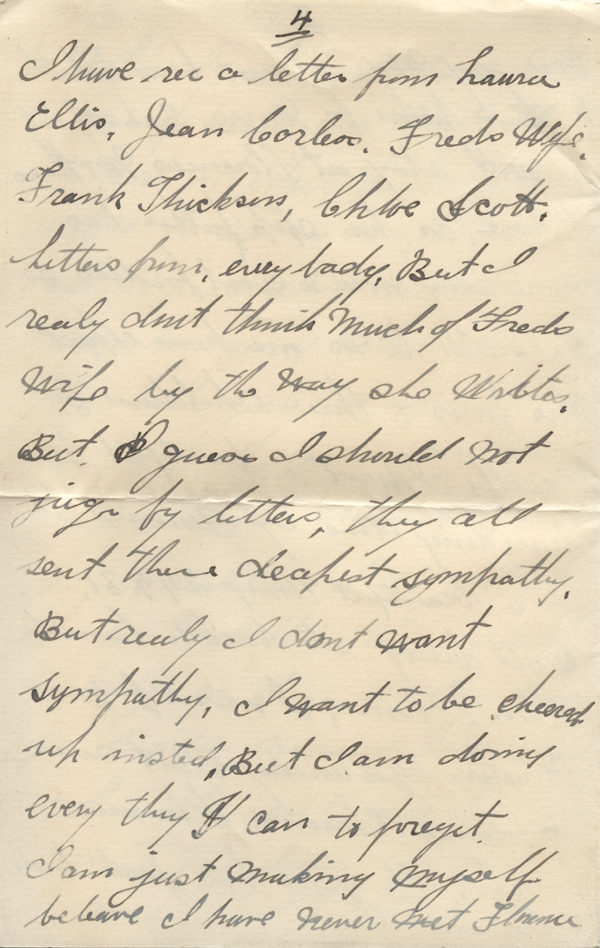 4
I have rec a letter from Laura
Ellis, Jean Corless. Freds Wife.
Frank Thicksen, Chloe Scott.
letters from, every body. But I
realy dont think Much of Freds
Wife by the Way she Writes.
But I guess I should Not
juge by letters, they all
sent there deapest sympathy.
But realy I dont want
sympathy, I want to be cheered
up insted, But I am doing
every thing I can to forget.
I am just making myself
beleave I have never met Florence